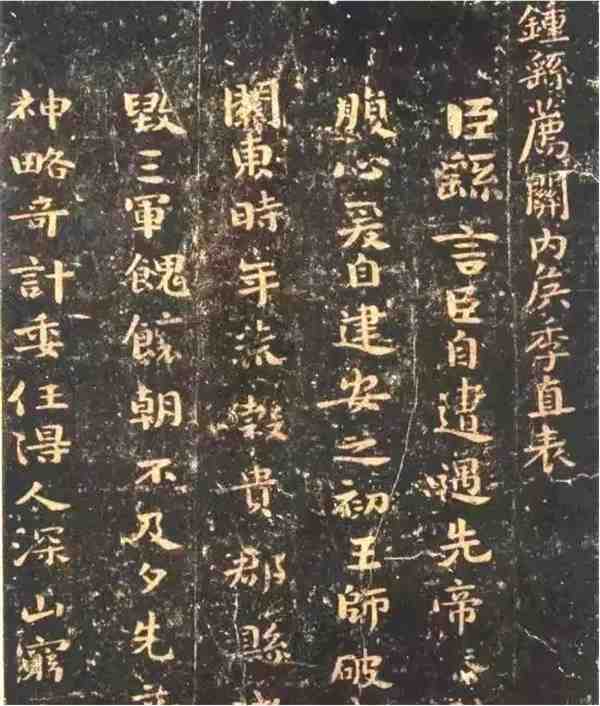 鍾繇薦關內侯季直表
臣繇言臣自遭遇先帝忝
腹心爰自建安之初王師破
關東時年荒穀貴郡縣
毀三軍餽饟朝不及夕先
神略奇計委任得人深山窮